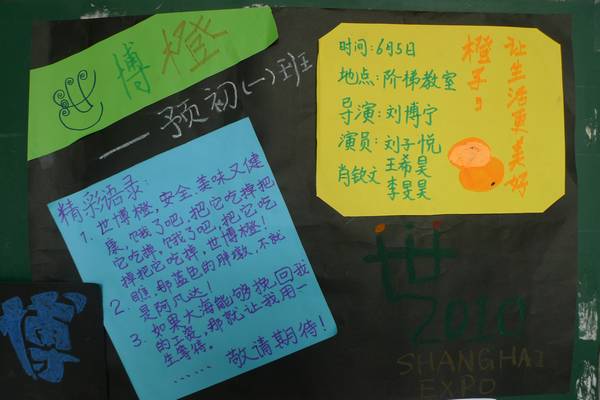 世博橙
——预初(一)班
时间:6月5日
地点:阶梯教室
导演:刘博宁
演员:刘子悦
王希昊
肖钦文 李旻昊
橙子!
让生活更美好
精彩语录:
1. 世博橙,安全美味又健
康,饿了吧,把它吃掉把
它吃掉,饿了吧,把它吃
掉把它吃掉,世博橙!
2. 瞧,那蓝色的胖墩,不就
是阿凡达!
3. 如果大海能够挽回我
的工资,那就让我用一
生等待。
……
敬请期待!
世
2010
SHANGHAI
EXPO
博